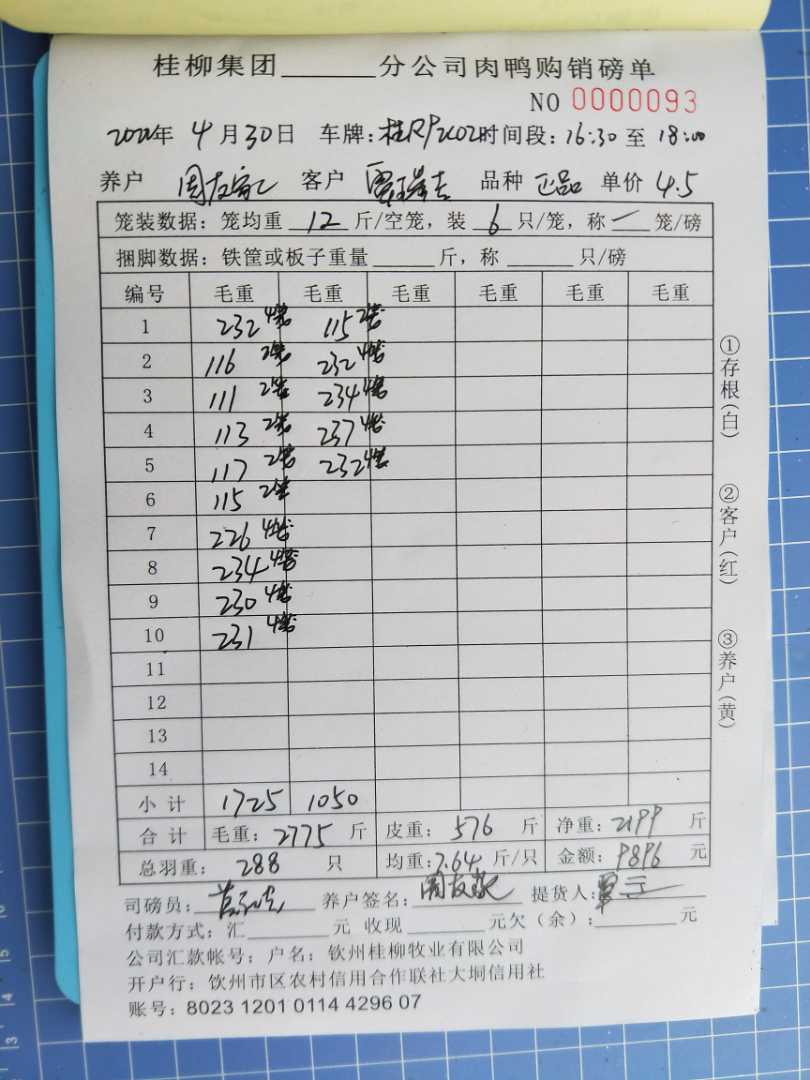 桂柳集团______分公司肉鸭购销磅单
NO 0000093
年 4 月 30 日 车牌: 时间段: 16:30 至 18:00
养户 周友 客户 品种 正品 单价 4.5
笼装数据: 笼均重 12 斤/空笼, 装 6 只/笼, 称 一 笼/磅
捆脚数据: 铁筐或板子重量______斤, 称______只/磅
编号 毛重 毛重 毛重 毛重 毛重 毛重
1 232 4笼 115 2笼
2 116 2笼 232 4笼
3 111 2笼 234 4笼
4 113 2笼 237 4笼
5 117 2笼 232 4笼
6 115 2笼
7 226 4笼
8 234 4笼
9 230 4笼
10 231 4笼
11
12
13
14
小计 1725 1050
合计 毛重: 2775 斤 皮重: 576 斤 净重: 2199 斤
总羽重: 288 只 均重: 7.64 斤/只 金额: 9896 元
司磅员: 养户签名: 周友 提货人:
付款方式: 汇______元 收现______元欠(余):______元
公司汇款帐号: 户名: 钦州桂柳牧业有限公司
开户行: 钦州市区农村信用合作联社大垌信用社
账号: 8023 1201 0114 4296 07
①存根(白)
②客户(红)
③养户(黄)